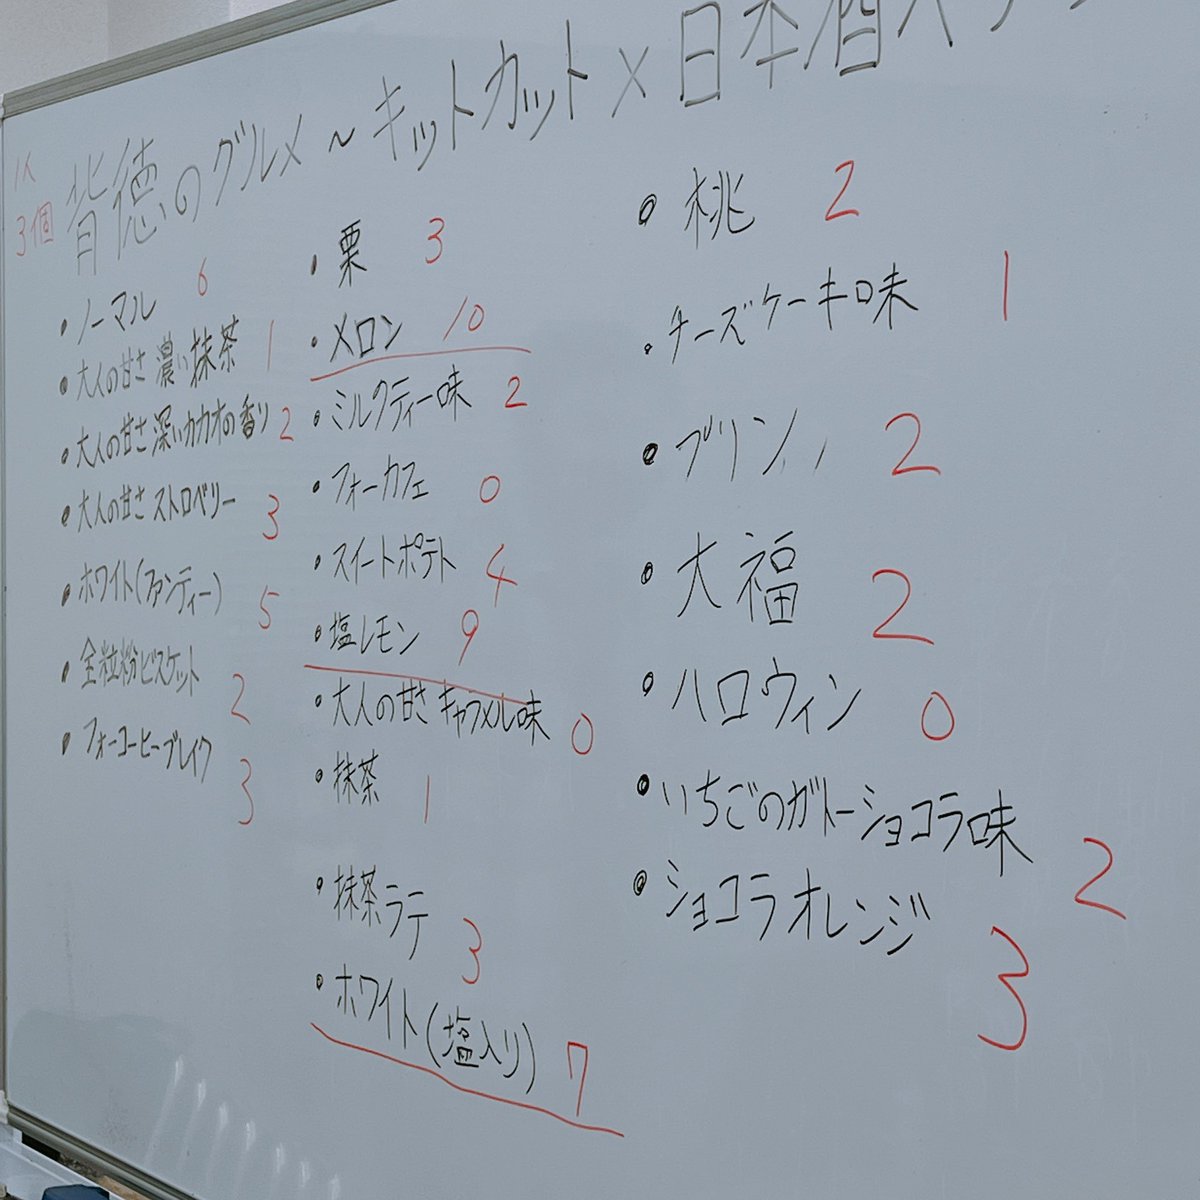 背徳のグルメ~キットカット×日本酒
1人
3個
・ノーマル 6
・大人の甘さ 濃い抹茶 1
・大人の甘さ 深いカカオの香り 2
・大人の甘さ ストロベリー 3
・ホワイト(ファンティー) 5
・全粒粉ビスケット 2
・フォーコーヒーブレイク 3
・栗 3
・メロン 10
・ミルクティー味 2
・フォーカフェ 0
・スイートポテト 4
・塩レモン 9
・大人の甘さ キャラメル味 0
・抹茶 1
・抹茶ラテ 3
・ホワイト(塩入り) 7
・桃 2
・チーズケーキ味 1
・プリン 2
・大福 2
・ハロウィン 0
・いちごのガトーショコラ味 2
・ショコラオレンジ 3